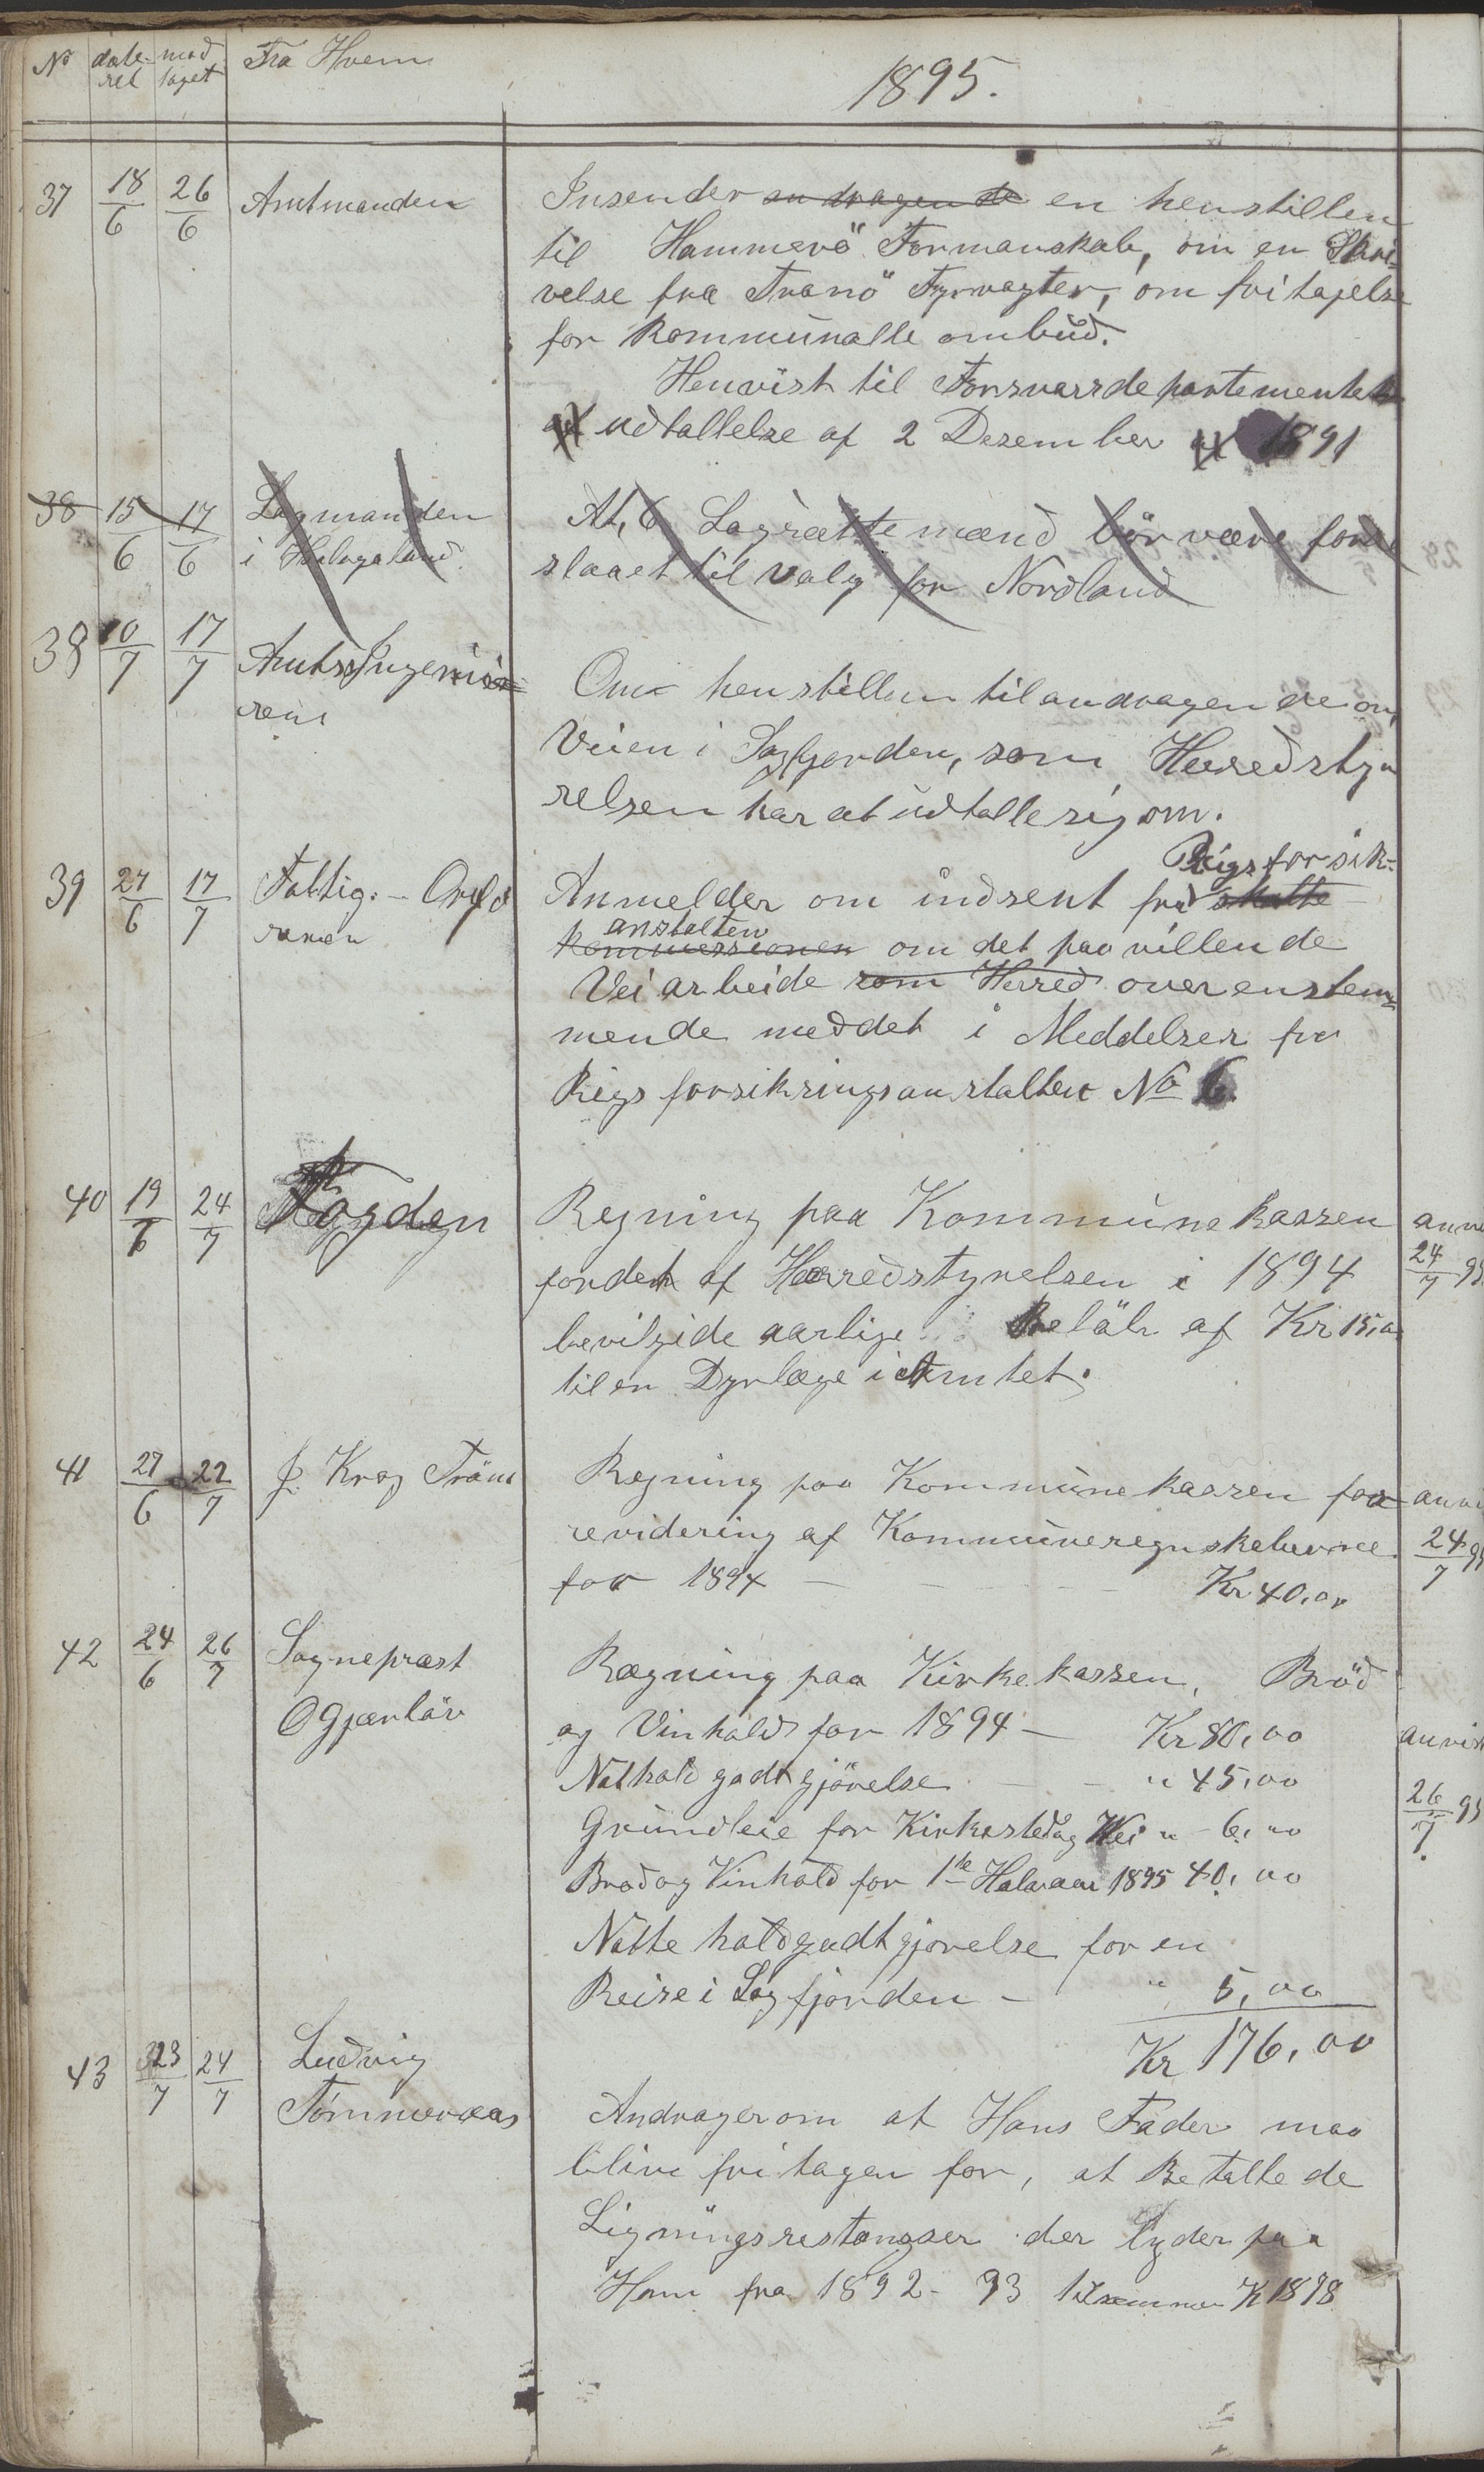 No date- mod Fra Hvem
ret taget
1895.
37 18/6 26/6 Amtmanden Insender andragende en henstillen
til Hammerö Formanskab, om en Skri-
velse fra Tranö Fyrvagter, om fritagelse
for Kommunalle ombud.
Henvist til Forsvarsdepartementets
af udtallelse af 2 Desember af 1891
38 15/6 17/6 Lagmanden At, 6 Lagrættemænd bör være fore
i Helogaland. slaaet til valg for Nordland
38 10/7 17/7 Amts Ingeniö Om henstillen til andragende om
ren
Veien i Sagfjorden, som Herredsty
relsen har at udtalle sig om.
Rigsforsik-
39 27/6 17/7 Fattig:- Anmelder om indsent fra skatte
anstalten
kommissionen om det paavillende
Vei arbeide som Herred overenstem-
mende meddet i Meddelser fra
Rigsforsikringsanstalten No 6.
40 19/7 24/7 Fogden Regning paa Kommunekassen anvi
fordet af Herredstyrelsen i 1894 24/7 95
bevilgide aarlige Belöb af Kr 15,00
til en Dyrlæge i Amtet.
41 27/6 22/7 J. Krog Tranö Regning paa Kommunekassen for anvi
revidering af Kommuneregnskaberne 24/7 95
for 1894 — — — Kr 40,00
42 24/6 26/7 Sogneprest Rægning paa Kirkekassen, Bröd
O Gjærlöv og Vinhold for 1894 — Kr 80,00 anvist
Nathold godtgjörelse — — " 45,00 26/7 95
Grundleie for Kirkested og Vei " - 6,00
Brød og Vinhold for 1ste Halvaar 1895 40,00
Natte holdgodtgjorelse for en
Reise i Sagfjorden — " 5,00
Kr 176,00
43 23/7 24/7 Ludvig
Tömmeraas Andrager om at Hans Fader maa
blive fritagen for, at Betalle de
Ligningsrestangser der lyder paa
Ham fra 1892 - 93 tilsammen K 1898